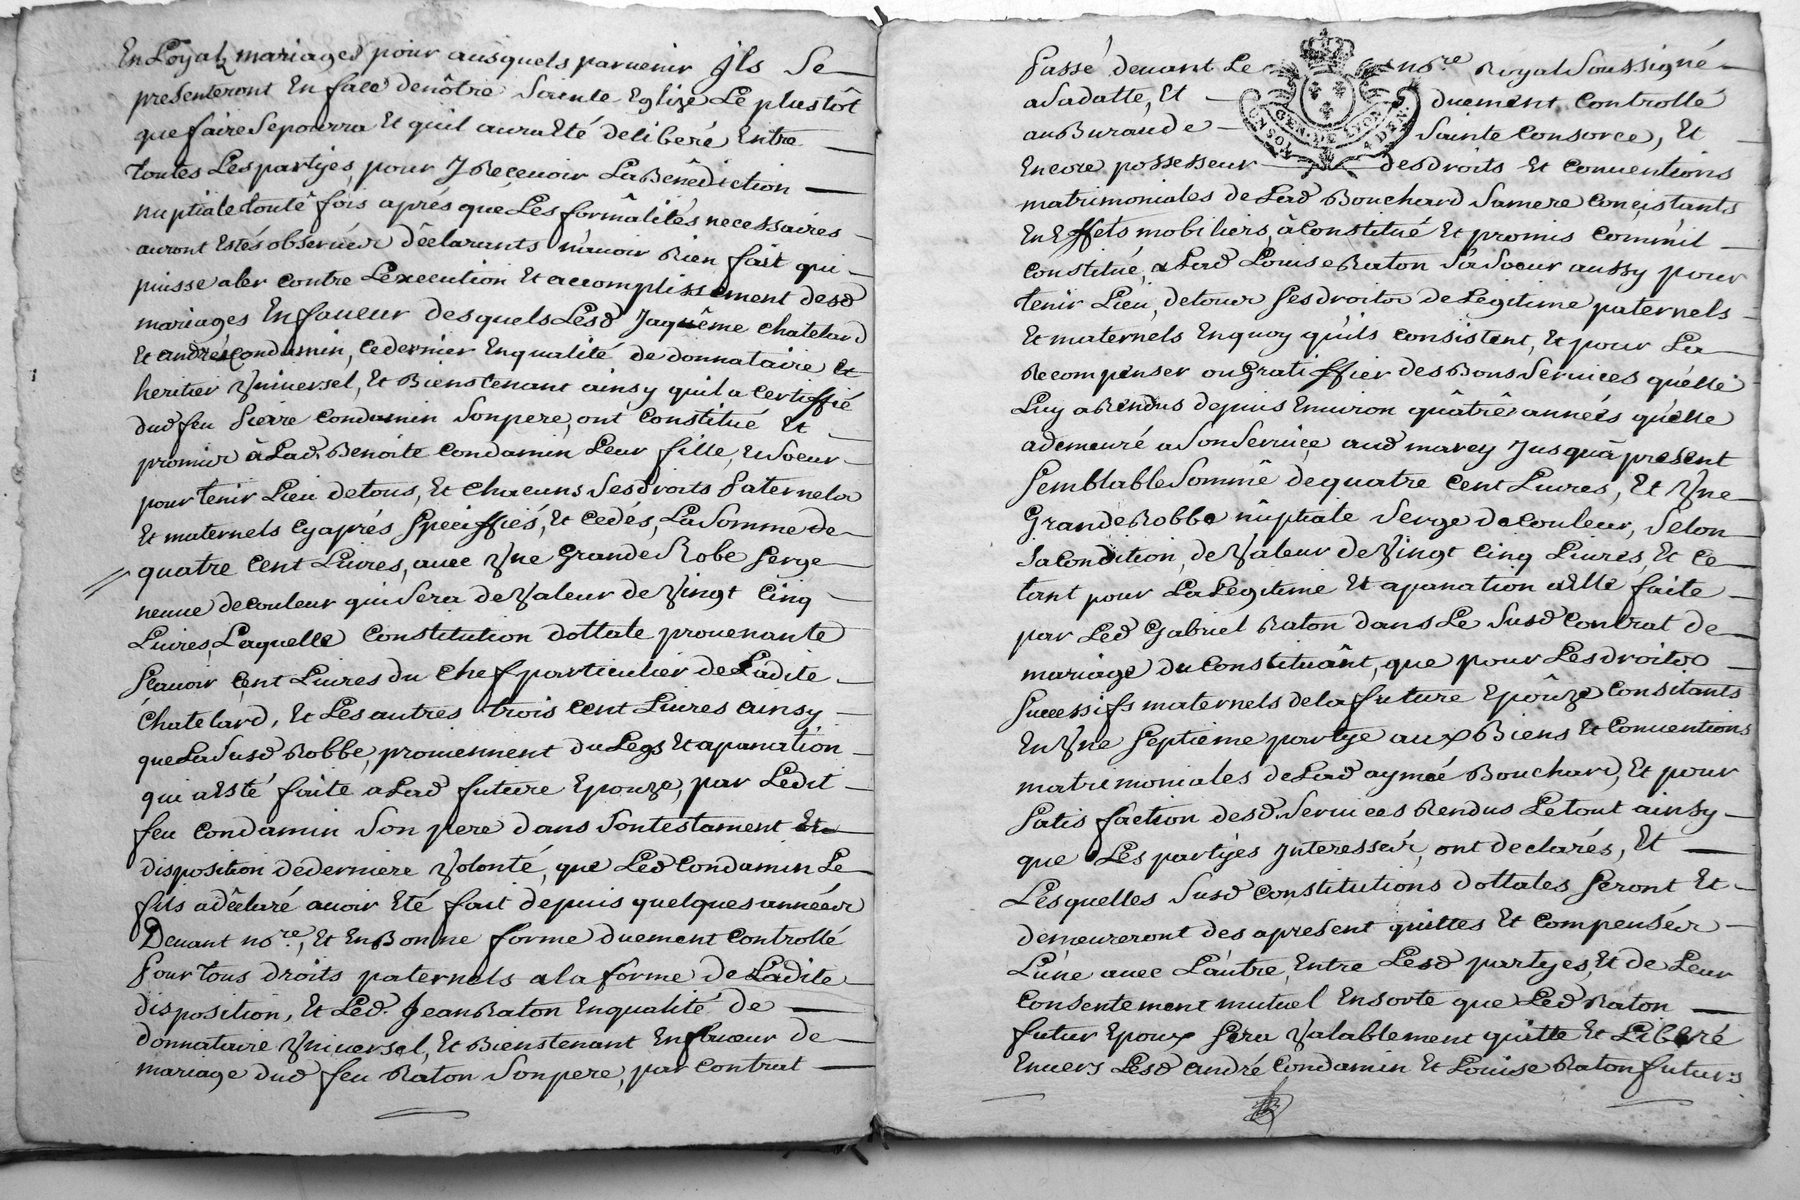 En Loyalz mariages pour ausquels parvenir Jls se
presenteront En face denôtre Sainte Eglize Le plustôt
que faire Sepourra Et quil aura Eté deliberé Entre
toutes Les partyes, pour J Reçevoir La Bénédiction
nuptiale toute fois aprés que Les formâlités necessaires
auront Estés observéer déclarants n'avoir Rien fait qui
puisse aler contre L'execution Et accomplissement desd
mariages En faveur desquels Lesd Jaquême chatelard
Et andré Condamin, cedernier Enqualité de donnataire Et
heritier Vniversel, Et Bienstenant ainsy quil a Certiffié
dud feu Pierre Condamin Sonpere, ont Constitué Et
promis à Lad. Benoite Condamin Leur fille, Et Soeur
pour tenir Lieu detous, Et Chacuns Sesdroits Paternels
Et maternels Cyaprés Speciffiés, Et Cedés, La Somme de
quatre Cent Livres, avec Vne Grande Robe Serge
neuve decouleur qui Sera de Valeur de Vingt Cinq
Livres, Laquelle Constitution dottale provenante
Sçavoir Cent Livres du Chef particulier de Ladite
Chatelard, Et Les autres trois cent Livres ainsy
que La Susd Robbe, proviennent du Legs Et apanation
qui a Esté faite a Lad future Epouze, par Ledit
feu Condamin Son pere dans Sontestament Et
disposition dederniere Volonté, que Led Condamin Le
fils a dêclaré avoir Eté fait depuis quelques annéer
Devant nore, Et En Bonne forme duement Controllé
Pour tous droits paternels a la forme de Ladite
disposition, Et Led. Jean Raton Enqualité de
donnataire Vniversel, Et Bienstenant En faveur de
mariage dud feu Raton Son pere, par Contrat
Passé devant Le nore Royal Soussigné
a Sadatte, Et duement Controllé
au Buraude Sainte Consorce, Et
Encore possesseur desdroits Et Conventions
matrimoniales de Lad Bouchard Samere Conçistants
En Effets mobiliers, à Constitué Et promis Comm'il
Constitué, a Lad Louise Raton Sa Soeur aussy pour
tenir Lieu, detous Sesdroits de Legitime paternels
Et maternels Enquoy quils Consistent, Et pour La
Recompenser ou Gratiffier des Bons Services quélle
Luy a Rendus depuis Environ quâtrê années quélle
ademeuré a Son Service aud marcy Jusqu'à present
Semblable Sommê de quatre Cent Livres, Et Vne
Grande Robbe nuptiale Serge decouleur, Selon
Sa Condition, de Valeur de Vingt Cinq Livres, Et Ce
tant pour La Legitime Et apanation a Elle faite
par Led Gabriel Raton dans Le Susd Contrat de
mariage du Constituânt, que pour Lesdroits
Successifs maternels de la future Epoûze Consitants
En Vne Septieme partye aux Biens Et Conventions
matrimoniales de Lad aymée Bouchard, Et pour
Satisfaction desd. Services Rendus Letout ainsy
que Les partyes Jnteresser, ont declarés, Et
Lesquelles Susd Constitutions dottales Seront Et
demeureront des apresent quittes Et Compenséer
L'une avec L'autre, Entre Lesd partyes, Et de Leur
Consentement mutuel Ensorte que Led Raton
futur Epoux Sera Valablement quitte Et Liberé
Envers Lesd andré Condamin Et Louise Raton futurs